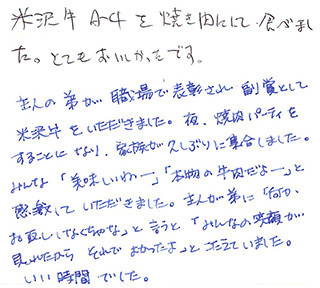 米沢牛A-4を焼き肉にて食べまし
た。とてもおいしかったです。
主人の弟が職場で表彰され副賞として
米沢牛をいただきました。夜、焼肉パーティを
することになり、家族が久しぶりに集合しました。
みんな「美味しいねー」「本物の牛肉だよー」と
感激していただきました。主人が弟に「何か、
お返ししなくちゃな」と言うと「みんなの笑顔が
見れたから それでよかったよ」とこたえていました。
いい時間でした。